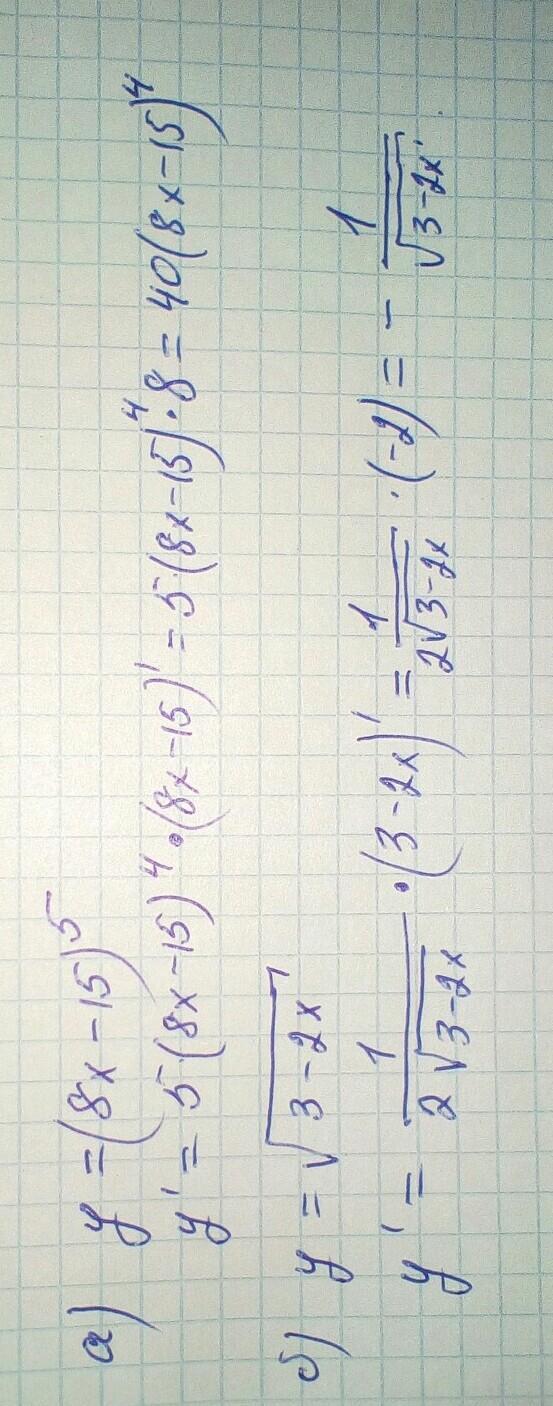 а) y = (8x - 15)^5
y' = 5(8x - 15)^4 • (8x - 15)' = 5(8x - 15)^4 • 8 = 40(8x - 15)^4
б) y = √(3 - 2x)
y' = 1/(2√(3 - 2x)) • (3 - 2x)' = 1/(2√(3 - 2x)) · (-2) = - 1/√(3 - 2x)